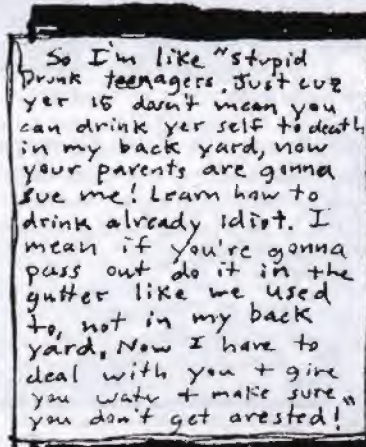 So I'm like "Stupid
Drunk teenagers. Just cuz
yer 15 dosn't mean you
can drink yer self to death
in my back yard, now
your parents are gonna
sue me! Learn how to
drink already idiot. I
mean if you're gonna
pass out do it in the
gutter like we used
to, not in my back
yard. Now I have to
deal with you + give
you water + make sure
you don't get arested!"